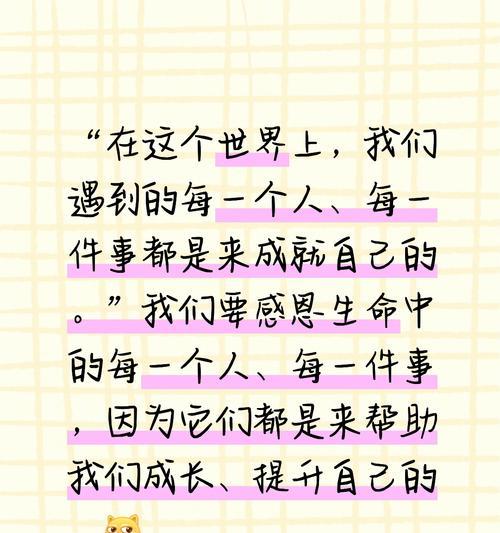 “在这个世界上，我们
遇到的每一个人、每一
件事都是来成就自己的
。”我们要感恩生命中
的每一个人、每一件事
，因为它们都是来帮助
我们成长、提升自己的